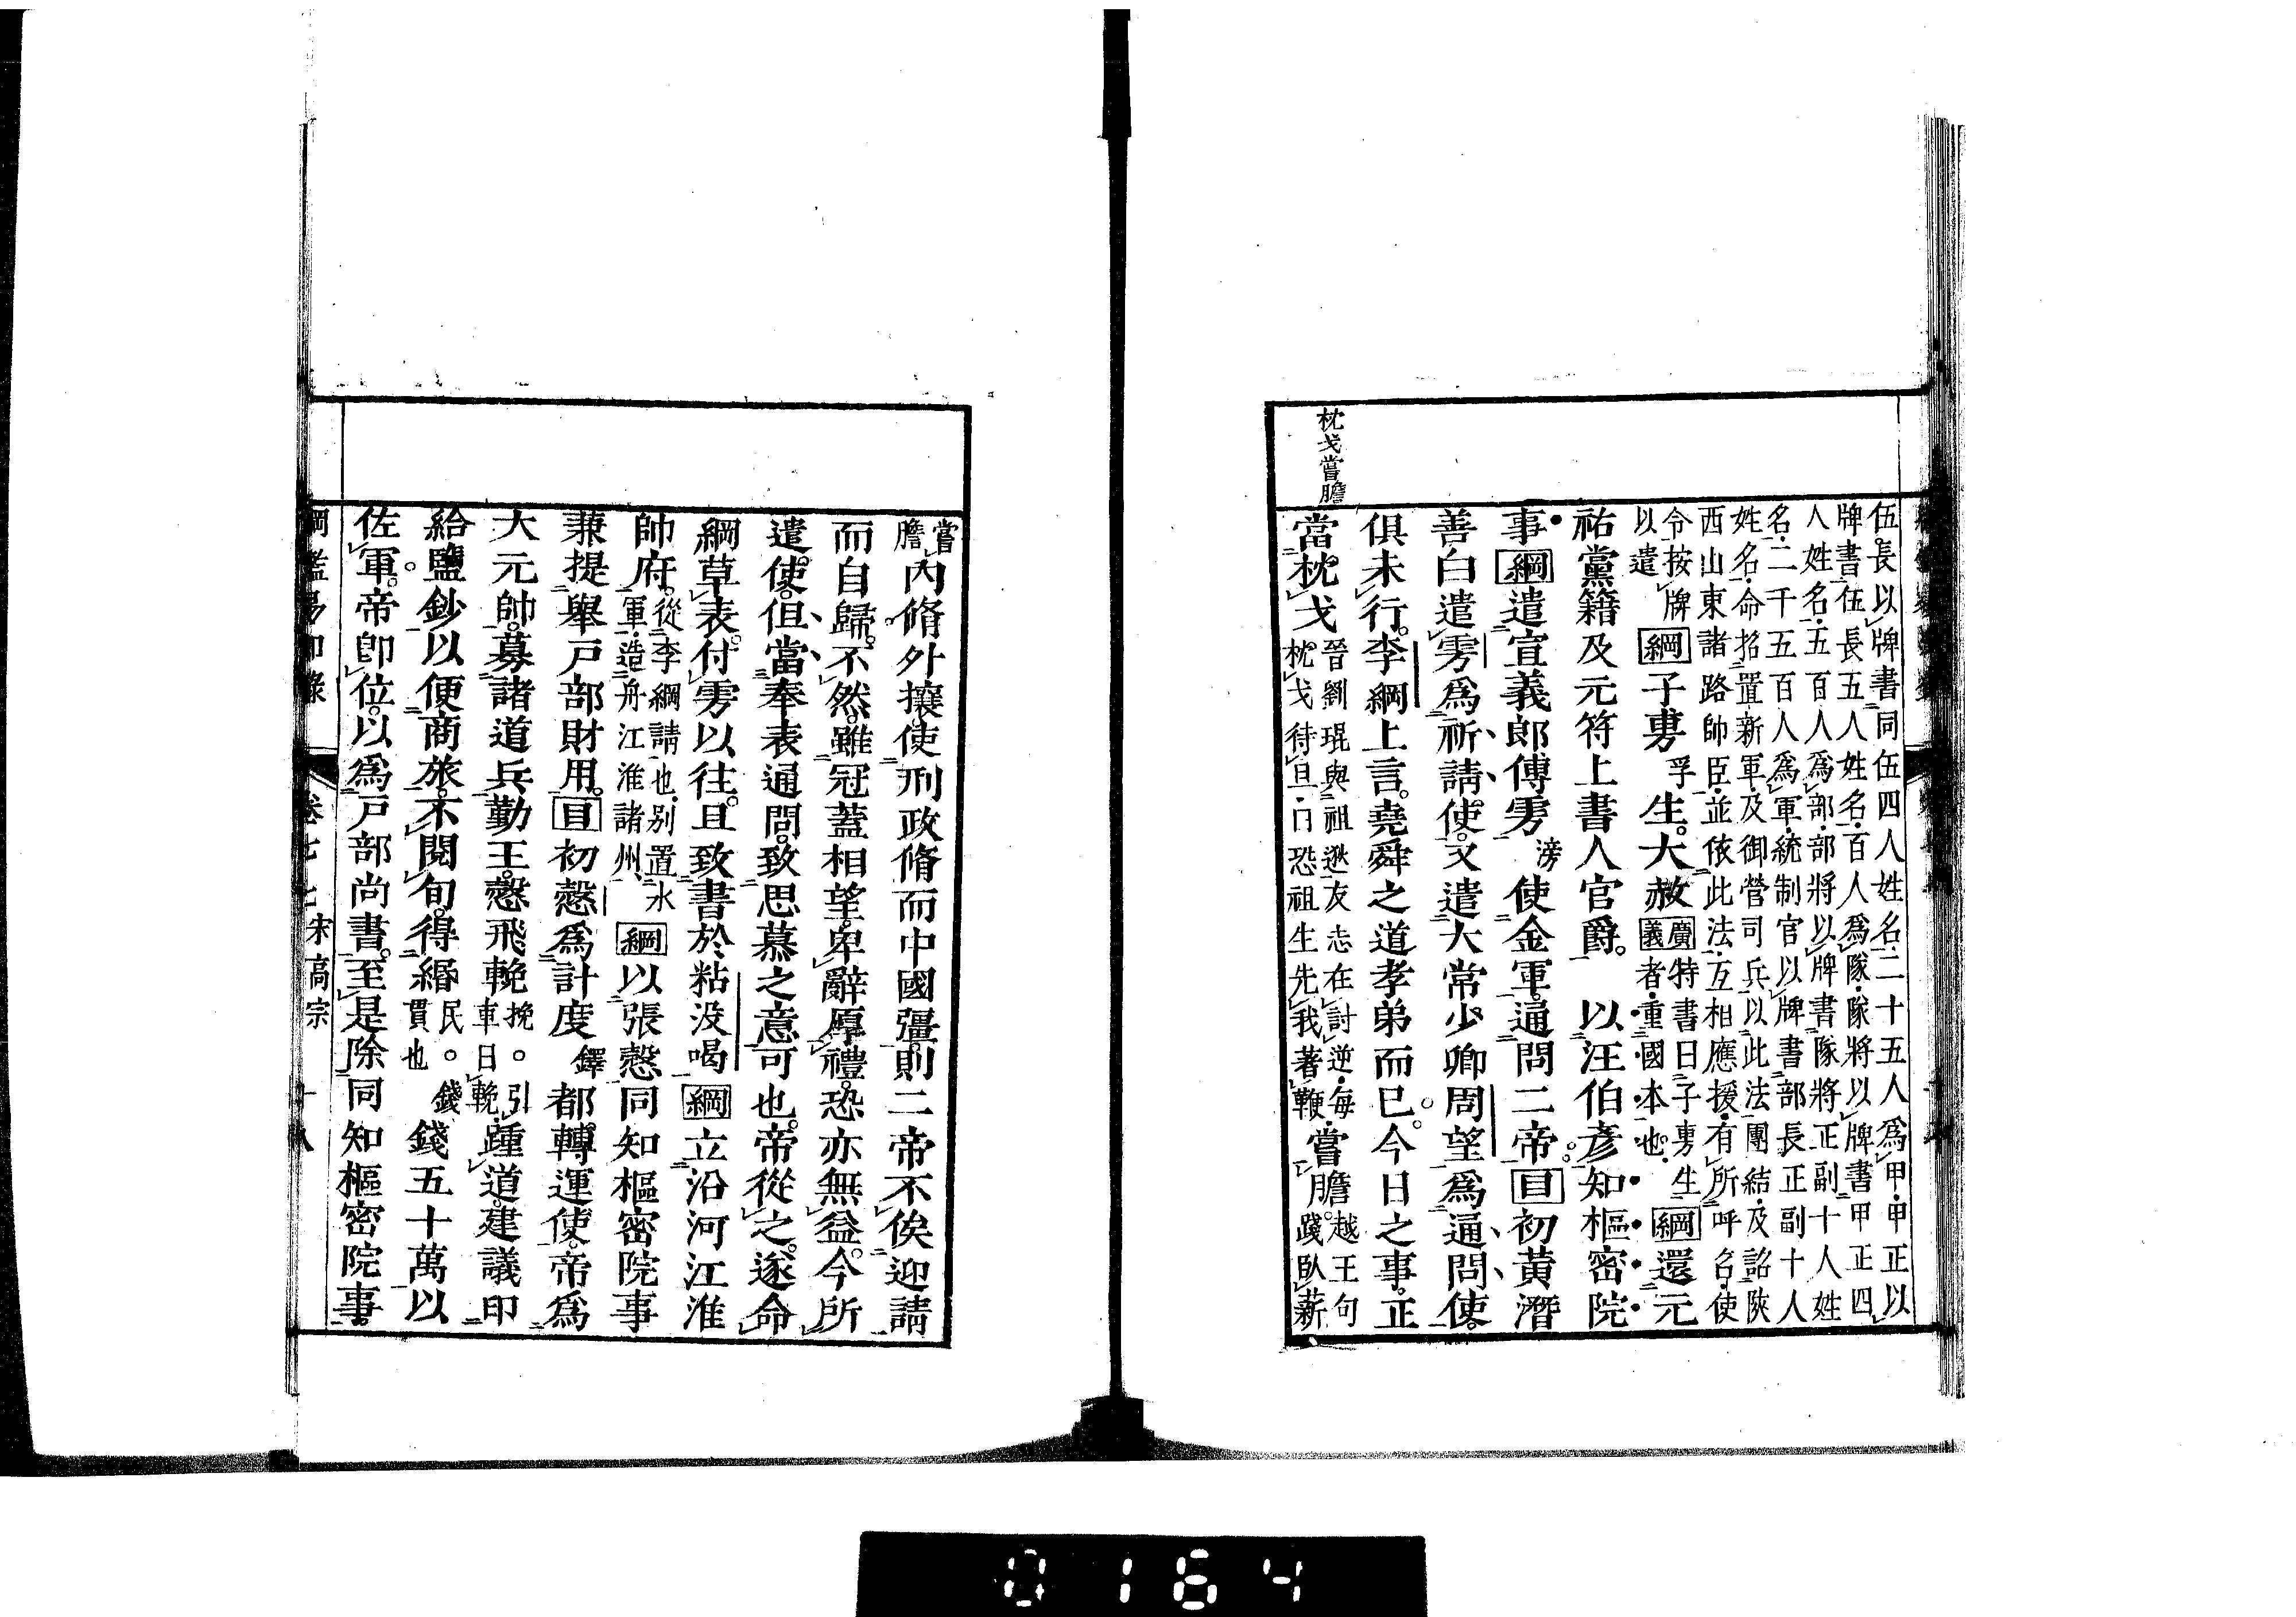 枕戈嘗膽
伍長以牌書同伍四人姓名二十五人爲甲甲正以
牌書伍長五人姓名百人爲隊隊將以牌書甲正四
人姓名五百人爲部部將以牌書隊將正副十人姓
名二千五百人爲軍統制官以牌書部長正副十人
姓名命招置新軍及御營司兵以此法團結及詔陝
西山東諸路帥臣並依此法互相應援有所呼召使
令按牌以遣綱子旉孚生大赦廣義特書曰子旉生者重國本也綱還元
祐黨籍及元符上書人官爵 以汪伯彥知樞密院
事綱遣宣義郎傅雱滂使金軍通問二帝目初黃潛
善白遣雱爲祈請使又遣大常少卿周望爲通問使
俱未行李綱上言堯舜之道孝弟而已今日之事正
當枕戈晉劉琨與祖逖友志在討逆每枕戈待旦日恐祖生先我著鞭嘗膽越王句踐臥薪
嘗膽內脩外攘使刑政脩而中國彊則二帝不俟迎請
而自歸不然雖冠蓋相望卑辭厚禮恐亦無益今所
遣使但當奉表通問致思慕之意可也帝從之遂命
綱草表付雱以往且致書於粘沒喝綱立沿河江淮
帥府從李綱請也別置水軍造舟江淮諸州綱以張愨同知樞密院事
兼提舉戶部財用目初愨爲計度鐸都轉運使帝爲
大元帥募諸道兵勤王愨飛輓挽。引車曰輓踵道建議印
給鹽鈔以便商旅不閱旬得緡民。錢貫也錢五十萬以
佐軍帝卽位以爲戶部尚書至是除同知樞密院事
綱鑑易知錄 卷七七 宋高宗 十八
0164